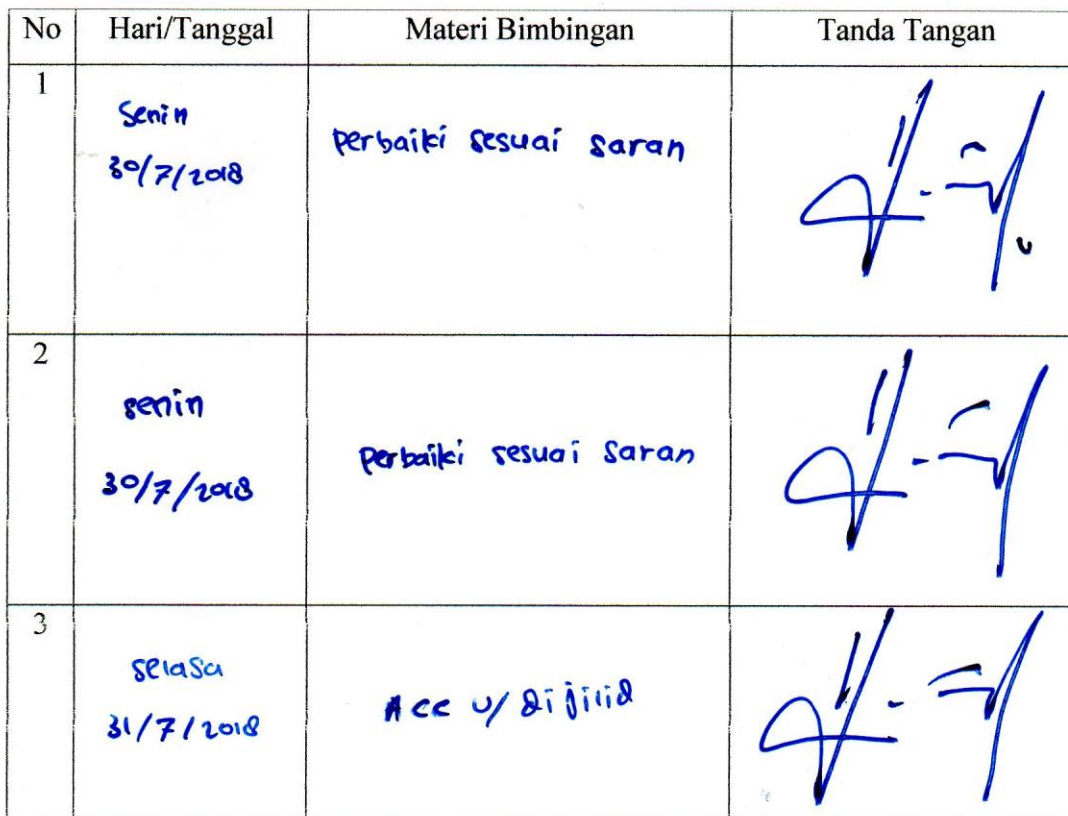 No Hari/Tanggal Materi Bimbingan Tanda Tangan
1
Senin
30/7/2018
perbaiki sesuai saran
2
senin
30/7/2018
perbaiki sesuai saran
3
selasa
31/7/2018
Acc u/ dijilid